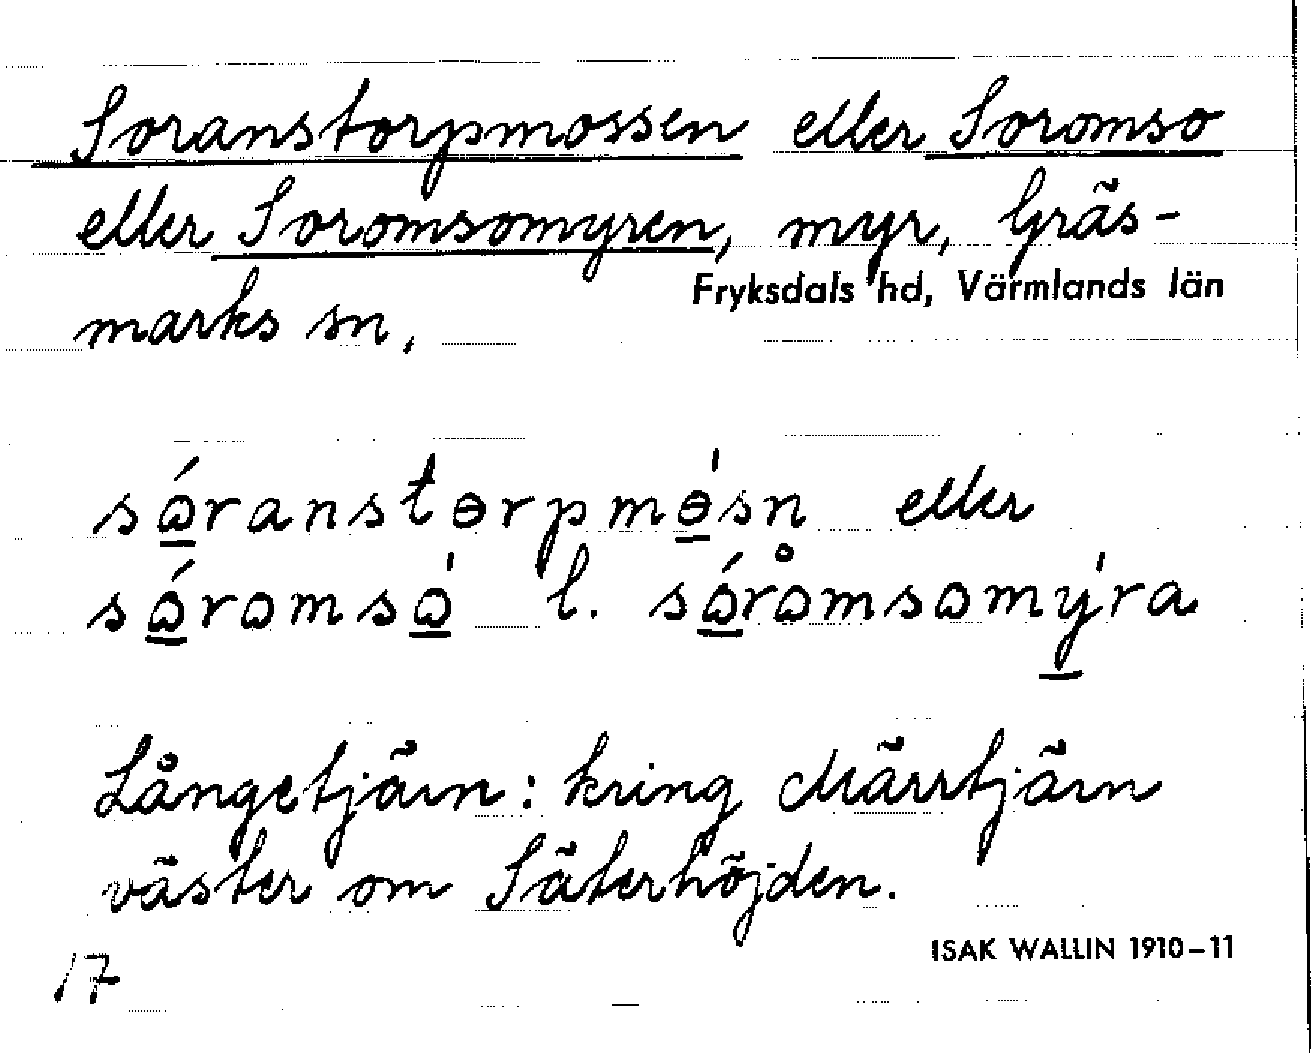 Soranstorpmossen eller Soromso
eller Soromsomyren, myr, Gräs-
marks sn,
Fryksdals hd, Värmlands län
sɷ́ranstɵrpmɵ́sn eller
sɷ́rɷmsɷ́ l. sɷ́rɷ̊msɷmýra
Långetjärn: kring Märrtjärn
väster om Säterhöjden.
ISAK WALLIN 1910-11
17